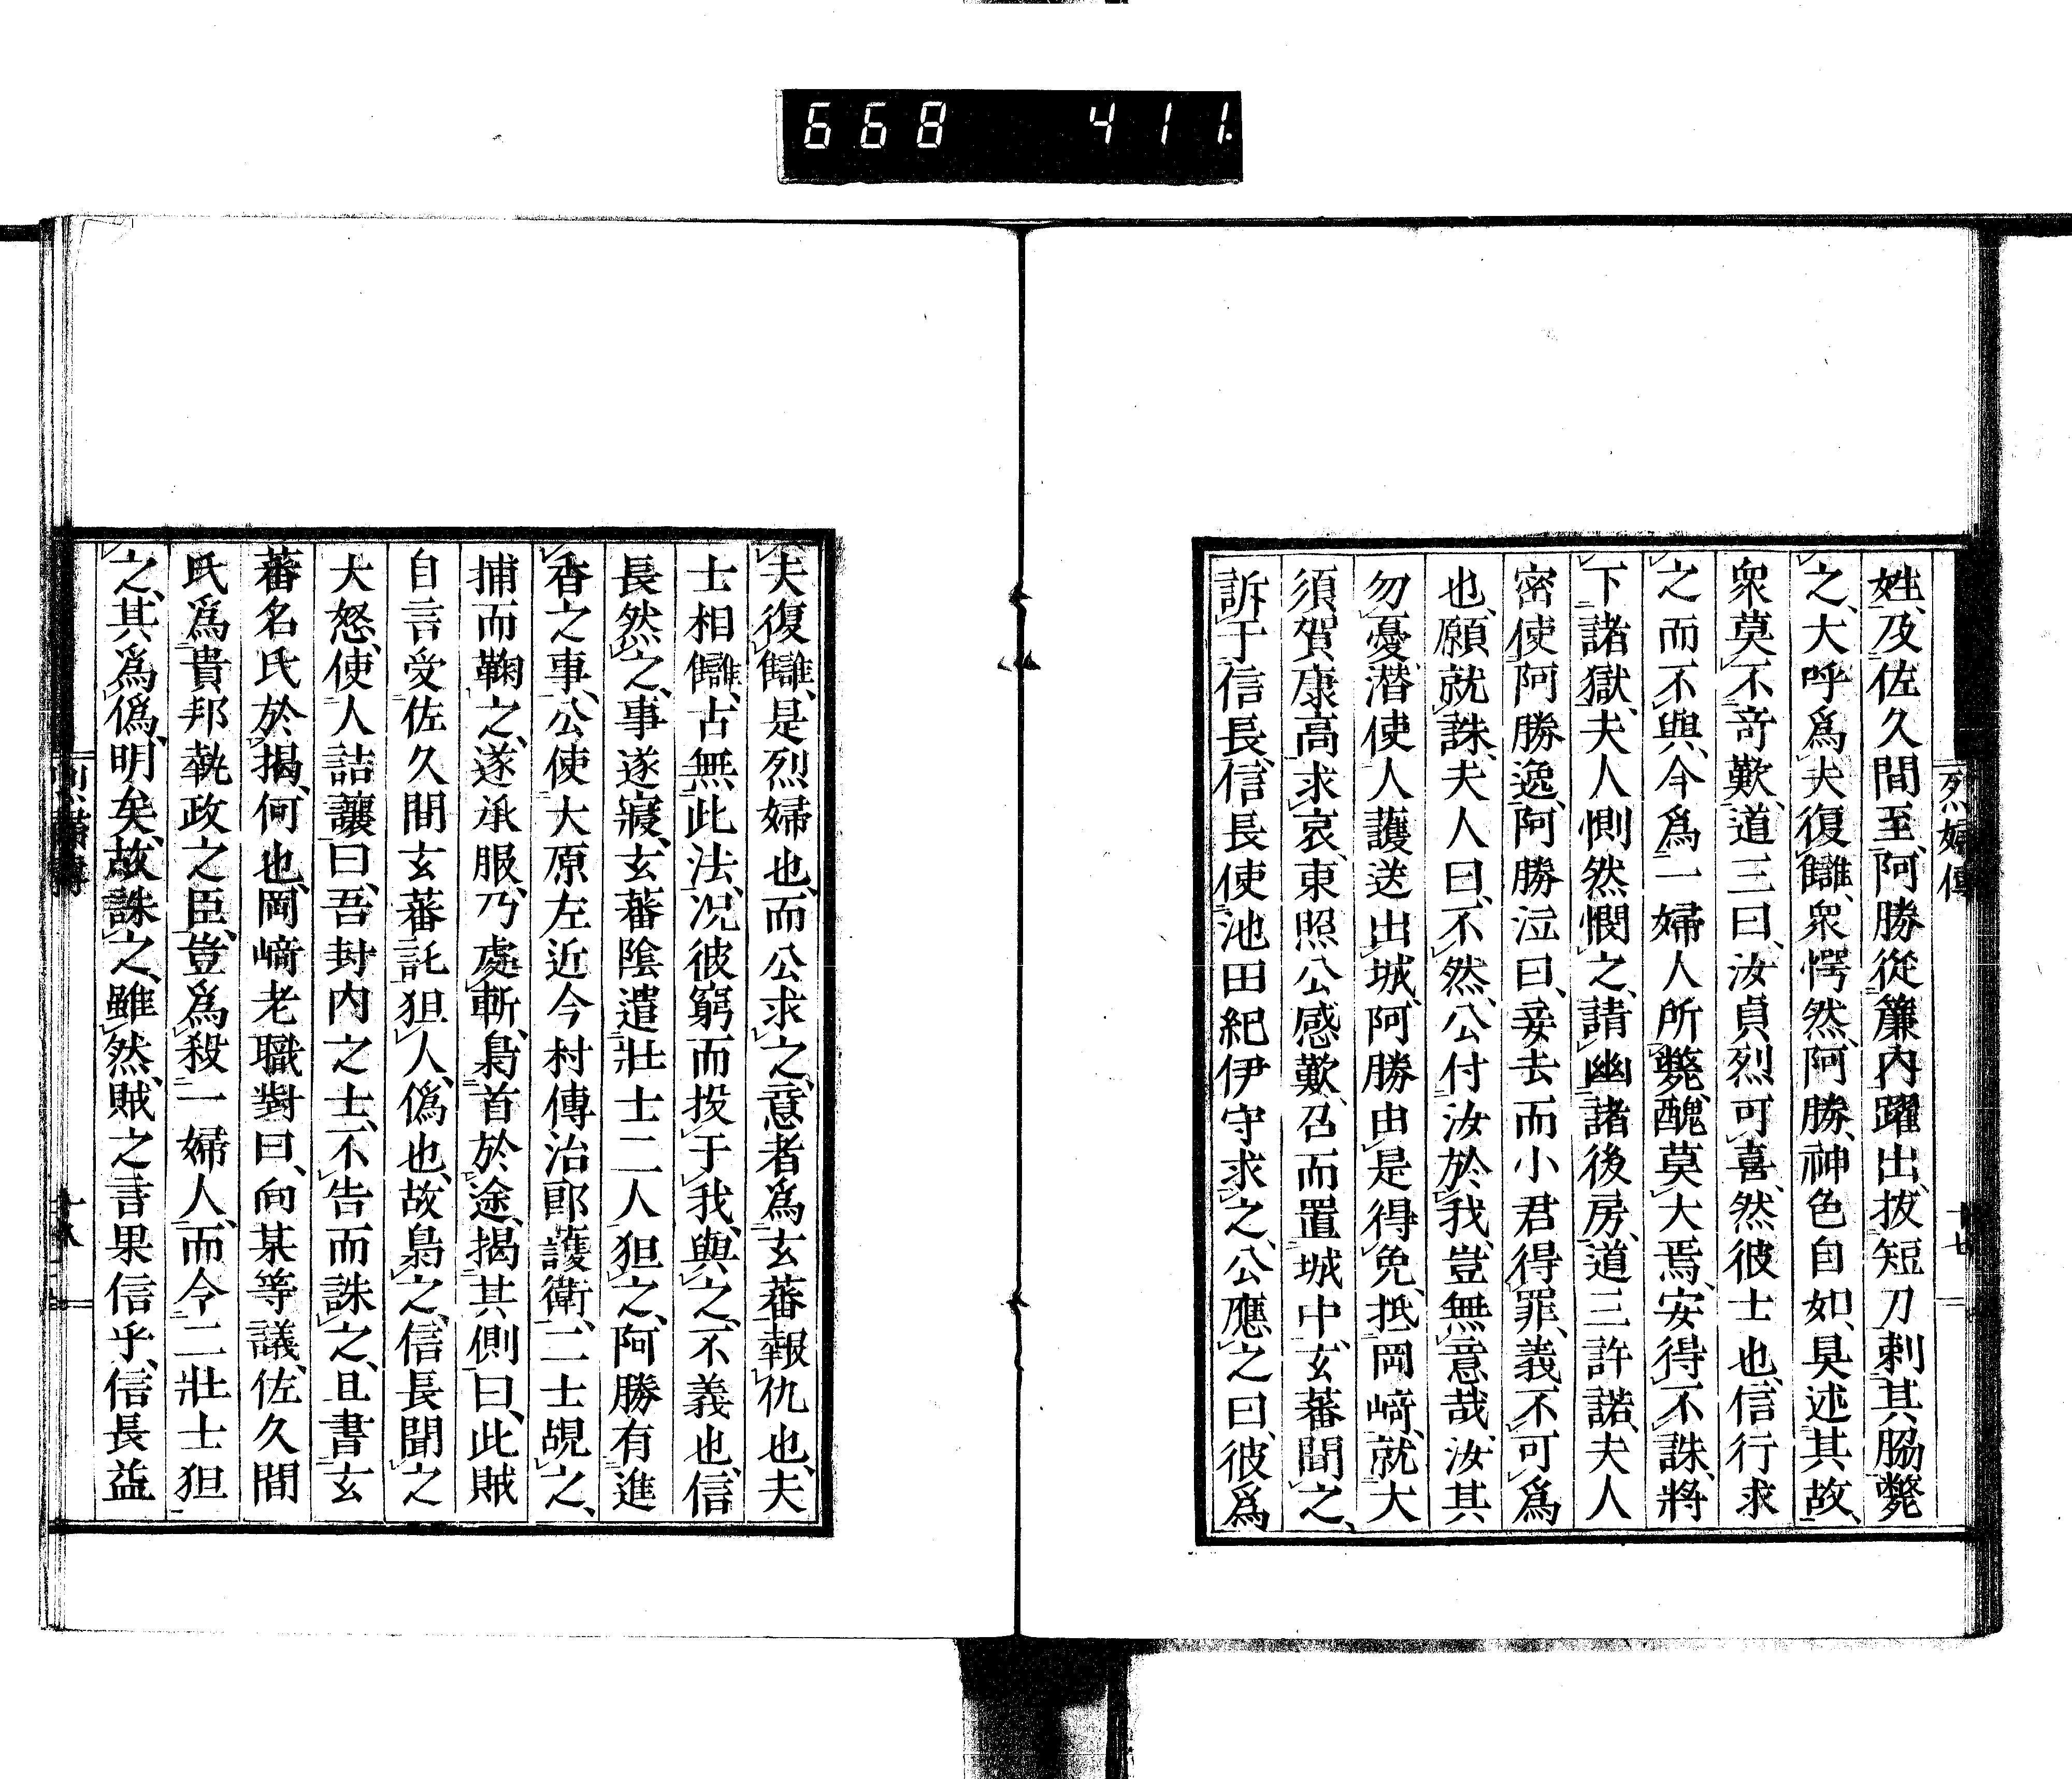 668 411.
烈婦傳
十七
姓、及佐久間至、阿勝從簾內躍出、拔短刀刺其脇斃
之、大呼爲夫復讎、衆愕然、阿勝神色自如、具述其故、
衆莫不竒歎、道三曰、汝貞烈可喜、然彼士也、信行求
之而不與、今爲一婦人所斃、醜莫大焉、安得不誅、將
下諸獄、夫人惻然憫之、請幽諸後房、道三許諾、夫人
密使阿勝逸、阿勝泣曰、妾去而小君得罪、義不可爲
也、願就誅、夫人曰、不然、公付汝於我、豈無意哉、汝其
勿憂、潛使人護送出城、阿勝由是得免、抵岡﨑、就大
須賀康高求哀、東照公感歎、召而置城中、玄蕃聞之、
訴于信長、信長使池田紀伊守求之、公應之曰、彼爲
夫復讎、是烈婦也、而公求之、意者爲玄蕃報仇也、夫
士相讎、古無此法、况彼窮而投于我、與之、不義也、信
長然之、事遂寢、玄蕃陰遣壯士二人狙之、阿勝有進
香之事、公使大原左近今村傳治郎護衛、二士覘之、
捕而鞠之、遂承服、乃處斬、梟首於途、揭其側曰、此賊
自言受佐久間玄蕃託狙人、僞也、故梟之、信長聞之
大怒、使人詰讓曰、吾封內之士、不告而誅之、且書玄
蕃名氏於揭、何也、岡﨑老職對曰、向某等議、佐久間
氏爲貴邦執政之臣、豈爲殺一婦人、而令二壯士狙
之、其爲僞、明矣、故誅之、雖然、賊之言果信乎、信長益
十八